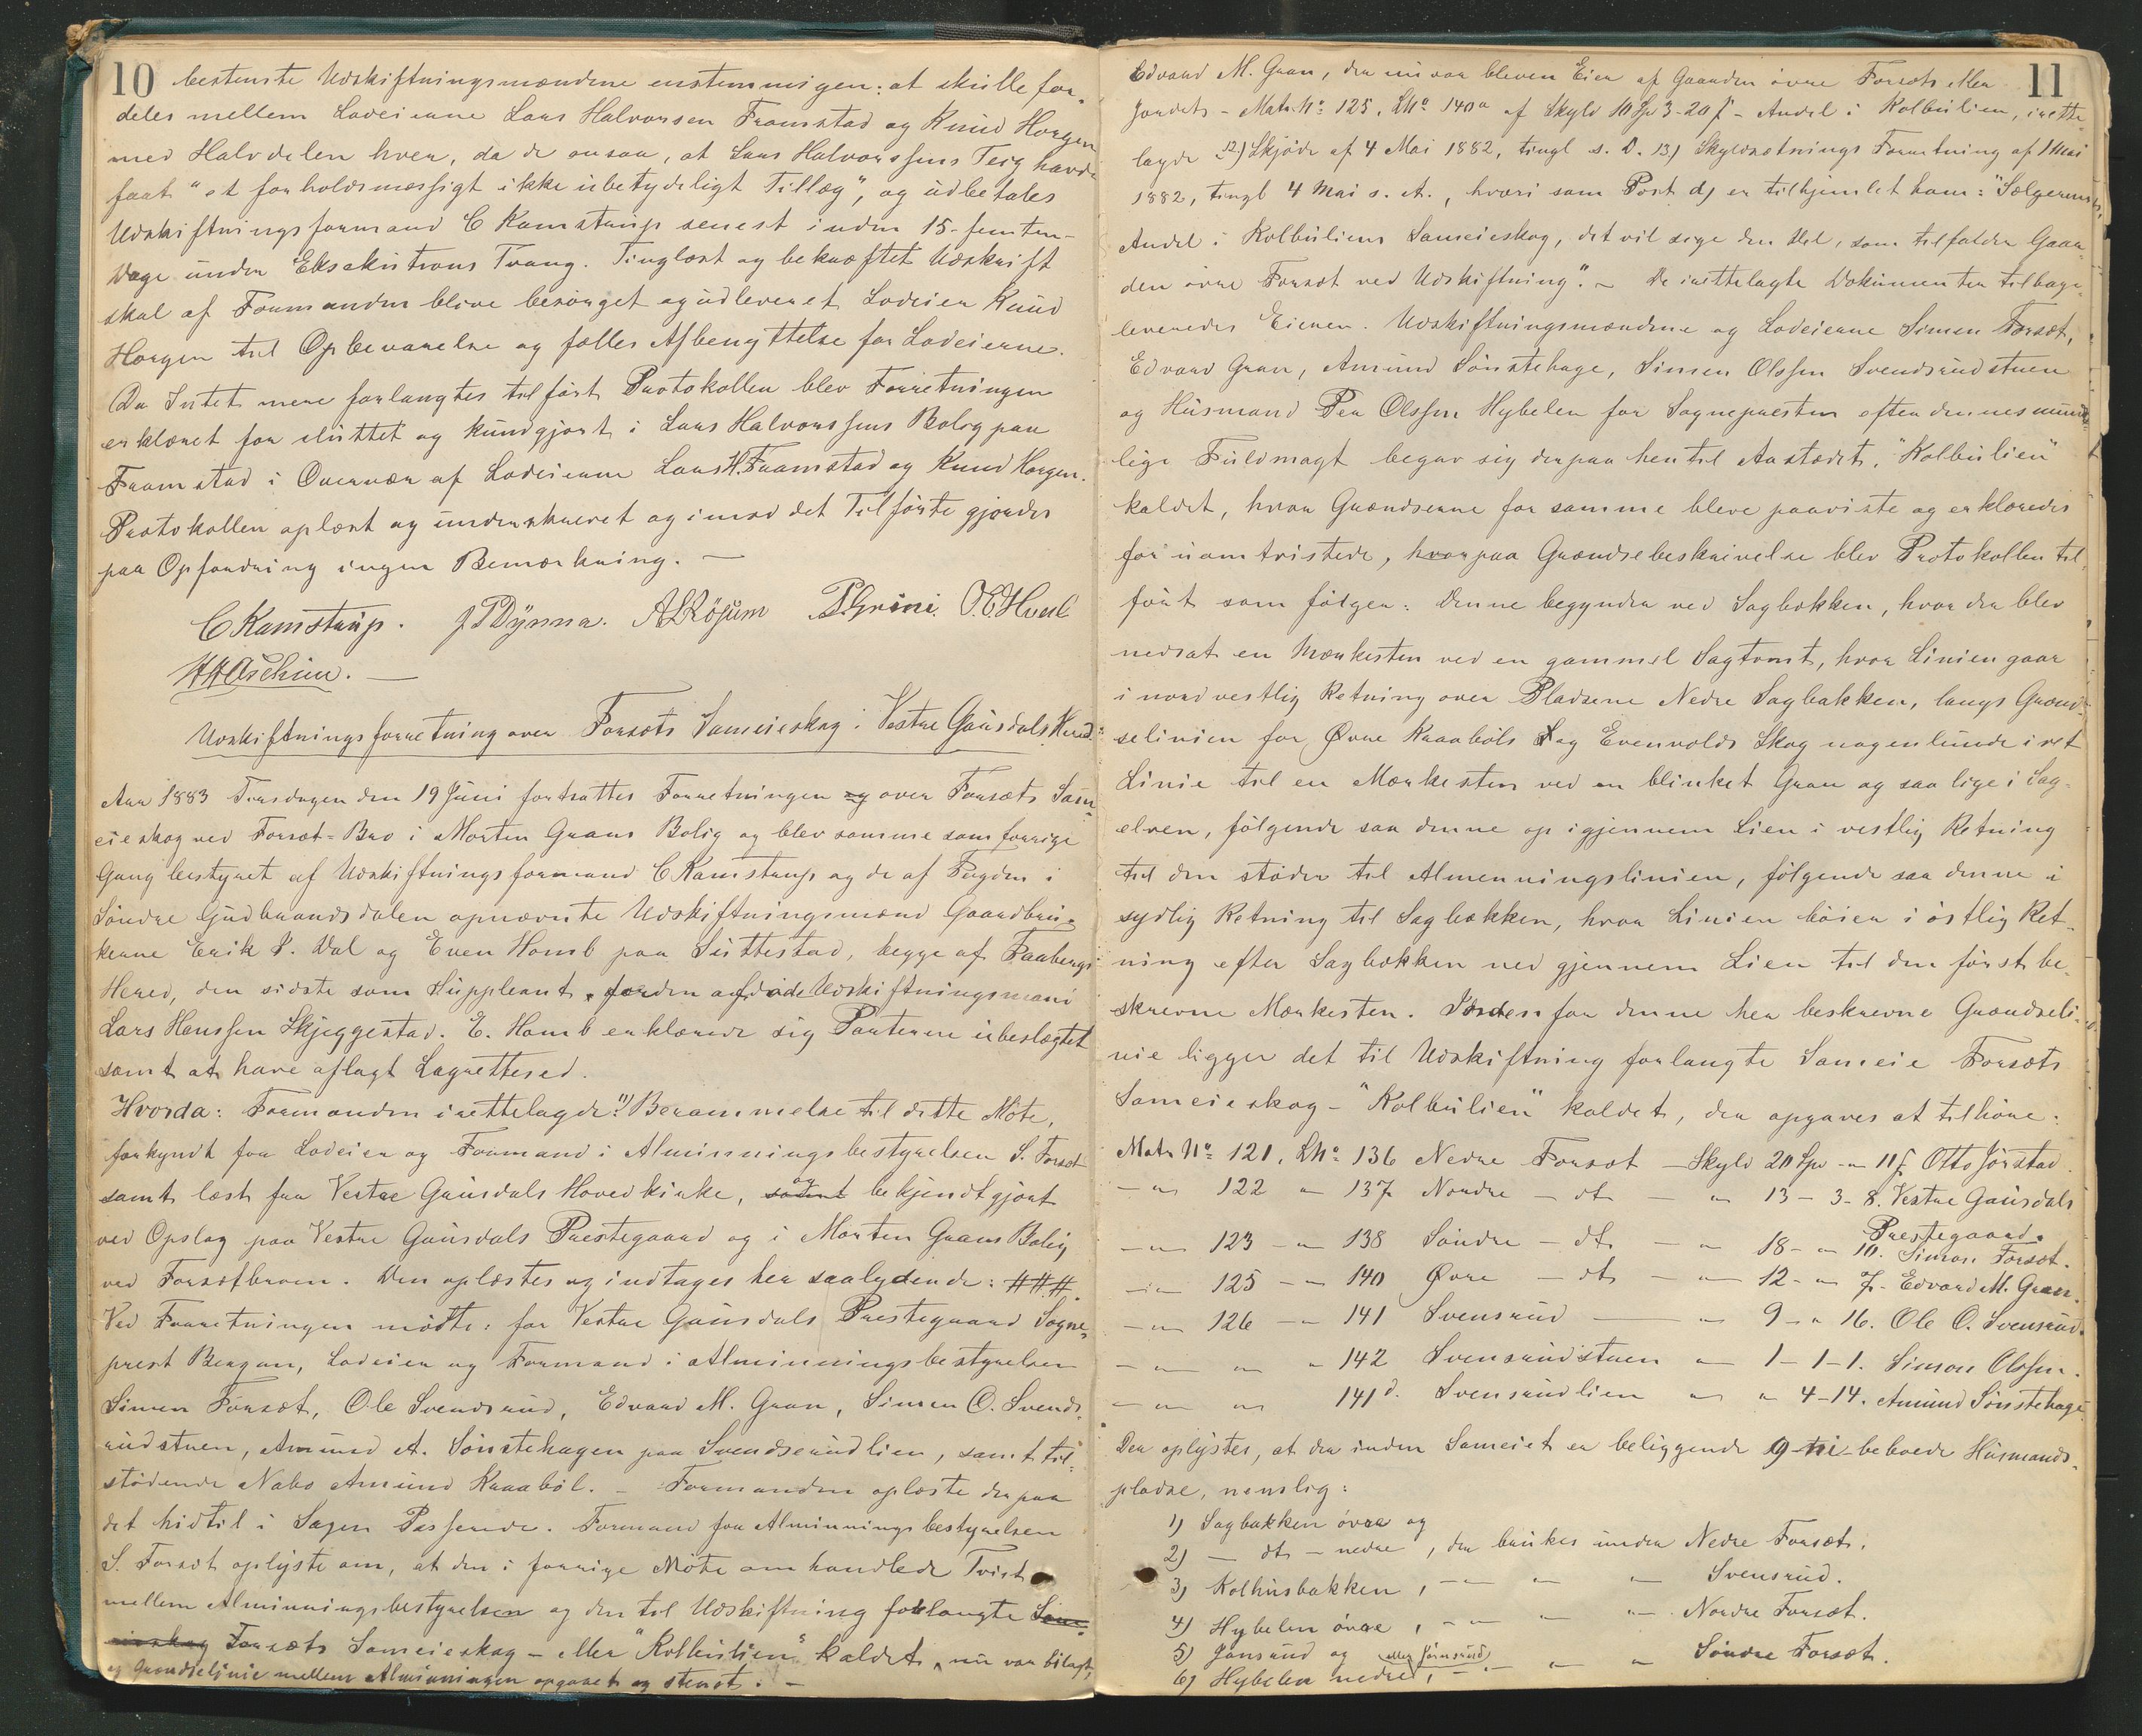 10
bestemte Udskiftningsmændene enstemmigen: at skulle for-
deles mellem Lodeierne Lars Halvorsen Framstad og Knud Horgen
med Halvdelen hver, da de ansaa, at Lars Halvorssens Teig havde
faat "et forholdsmessigt ikke ubetydeligt Tillæg", og udbetales
Udskiftningsformand C Kamstrup senest inden 15-femten-
Dage under Eksekutions Tvang. Tinglæst og bekræftet Udskrift
skal af Formanden blive besörget og udleveret Lodeier Knud
Horgen til Opbevarelse og fælles Afbenyttelse for Lodeierne.
Da Intet mere forlangtes tilfört Protokollen blev Forretningen
erklæret for sluttet og kundgjort i Lars Halvorssens Bolig paa
Framstad i Overvær af Lodeierne Lars H. Framstad og Knud Horgen.
Protokollen oplæst og underskrevet og imod det Tilförte gjordes
paa Opfordring ingen Bemærkning. —
C Kamstrup. J P Dynna. A L Rösum P. Grini. O. E. Hvesl
H H Aschim. —
Udskiftningsforretning over Forsæts Sameieskog i Vestre Gausdals Hered:
Aar 1883 Tirsdagen den 19 Juni fortsattes Forretningen og over Forsæts Sam-
eieskog ved Forsæt-Bro i Morten Grans Bolig og blev samme som forrige
Gang bestyret af Udskiftningsformand C Kamstrup og de af Fogden i
Söndre Gudbrandsdalen opnævnte Udskiftningsmænd Gaardbru-
kerne Erik P. Dal og Even Homb paa Suttestad, begge af Faabergs
Hered, den sidste som Suppleant for den afdöde Udskiftningsmand
Lars Hanssen Skjeggestad. E. Homb erklærede sig Parterne ubeslægtet
samt at have aflagt Lagrettesed.
Hvorda: Formanden irettelagde: 11) Berammelse til dette Möte,
forkyndt for Lodeier og Formand i Alminningsbestyrelsen S. Forsæt
samt læst fra Vestre Gausdals Hovedkirke, samt og bekjendtgjort
ved Opslag paa Vestre Gausdals Prestegaard og i Morten Grans Bolig
ved Forsætbroen. Den oplæstes og indtages her saalydende: ###.
Ved Forretningen mödte: for Vestre Gausdals Prestegaard Sogne-
prest Bergan, Lodeier og Formand i Alminningsbestyrelsen
Simen Forsæt, Ole Svendsrud, Edvard M. Gran, Simen O. Svends-
rudstuen, Amund A. Sönstehagen paa Svendserudlien, samt til-
stödende Nabo Amund Kraaböl. – Formanden oplæste derpaa
det hidtil i Sagen Passerede. Formand for Alminningsbestyrelsen
S. Forsæt oplyste om, at den i forrige Möte omhandlede Tvist
mellem Alminningsbestyrelsen og den til Udskiftning forlangte Sam-
eieskog Forsæts Sameieskog – eller "Kolbulien" kaldet, nu var bilagt,
og Grændselinie mellem Alminningen opgaaet og stenet. –
11
Edvard M. Gran, der nu var bleven Eier af Gaarden övre Forsæt eller
Jordets – Matr. No 125, LNo 140a af Skyld 10 Spd 3-20 f – Andel i Kolbulien, irette-
lagde 12) Skjöde af 4 Mai 1882, tingl s. D. 13) Skyldsætnings Forretning af 1 Mai
1882, tingl 4 Mai s. A., hvori som Post d) er tilhjemlet ham: "Sælgerens
Andel i Kolbuliens Sameieskog, det vil sige den Del, som tilfalder Gaar-
den övre Forsæt ved Udskiftning". – De irettelagte Dokumenter tilbage-
leveredes Eieren. Udskiftningsmændene og Lodeierne Simen Forsæt,
Edvard Gran, Amund Sönstehage, Simen Olssen Svendsrudstuen
og Husmand Per Olssen Hybelen for Sognepresten efter dennes mund-
lige Fuldmagt begav sig derpaa hen til Aastædet, "Kolbulien"
kaldet, hvor Grændserne for samme bleve paaviste og erklæredes
for uomtvistede, hvorpaa Grændsebeskrivelse blev Protokollen til-
fört som fölger: Denne begynder ved Sagbækken, hvor der blev
nedsat en Mærkesten ved en gammel Sagtomt, hvor Linien gaar
i nordvestlig Retning over Pladsene Nedre Sagbakken, langs Grænd-
selinien for Övre Kraaböls og Evenvolds Skog nogenlunde i ret
Linie til en Mærkesten ved en blinket Gran og saa lige i Sag-
elven, fölgende saa denne op igjennem Lien i vestlig Retning
til den stöder til Almenningslinien, fölgende saa denne i
sydlig Retning til Sagbækken, hvor Linien böier i östlig Ret-
ning efter Sagbækken ned gjennem Lien til den först be-
skrevne Mærkesten. Inden for denne her beskrevne Grændseli-
nie ligger det til Udskiftning forlangte Sameie Forsæts
Sameieskog – "Kolbulien" kaldet, der opgaves at tilhöre:
Matr No 121, LNo 136 Nedre Forsæt – Skyld 20 Spd – " 11 f Otto Jörstad.
– " 122 " 137 Nordre – dt – " 13 – 3 – 8. Vestre Gausdals
Prestegaard.
– " 123 – " 138 Söndre – dt – " 18 – " 10. Simen Forsæt.
– " 125 – " 140 Övre – dt – " 12 – " 7. Edvard M. Gran.
– " 126 – " 141 Svensrud — " 9 – " 16. Ole O. Svensrud.
– " " – " 142 Svensrudstuen " – 1 – 1 – 1. Simen Olssen.
– " " 141d. Svensrudlien " " 4 – 14. Amund Sönstehage.
Der oplystes, at der inden Sameiet er beliggende 9 – ni – beboede Husmands-
pladse, nemlig:
1) Sagbakken övre og
2) — dt – nedre, der brukes under Nedre Forsæt.
3) Kolhusbakken, – " " " Svensrud.
4) Hybelen övre, – " " " Nordre Forsæt.
5) Jansrud og eller Jörnsrud
6) Hybelen nedre, – " " " Söndre Forsæt.